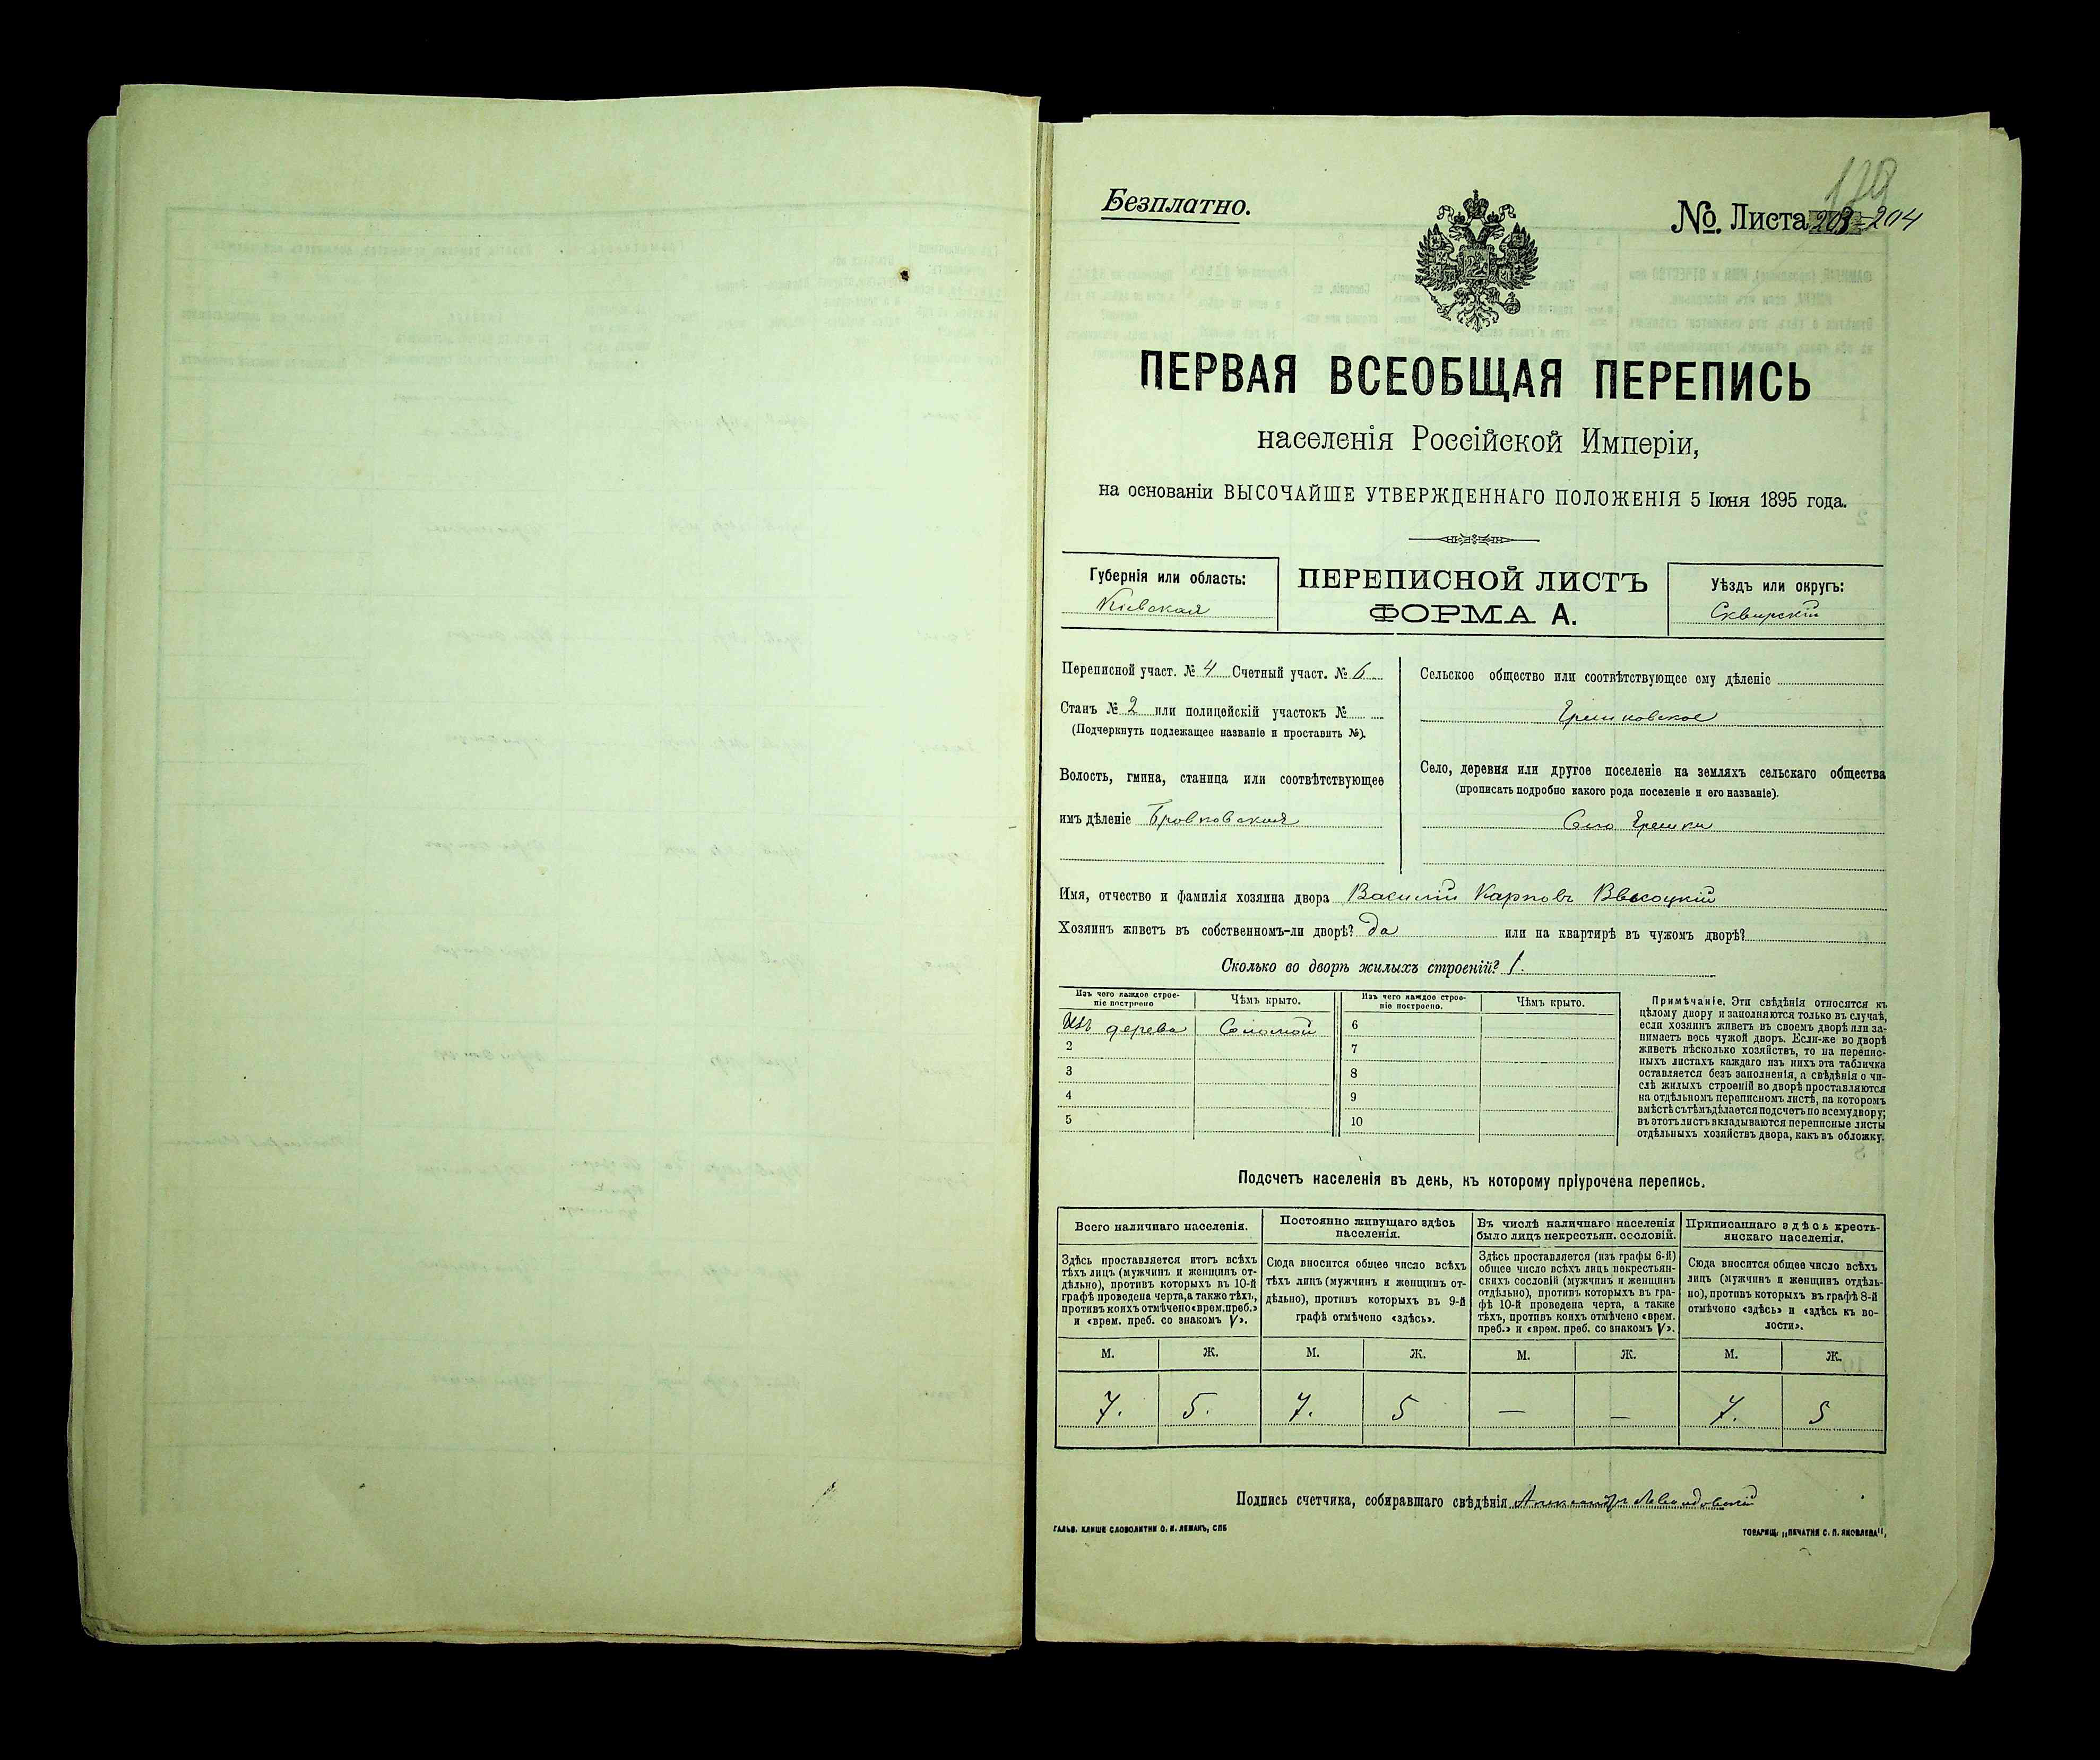 Безплатно.
179
№. Листа 203-204
ПЕРВАЯ ВСЕОБЩАЯ ПЕРЕПИСЬ
населенія Россійской Имперіи,
на основаніи ВЫСОЧАЙШЕ УТВЕРЖДЕННАГО ПОЛОЖЕНІЯ 5 Іюня 1895 года.
Губернія или область:
Кіевская
ПЕРЕПИСНОЙ ЛИСТЪ
ФОРМА А.
Уѣздъ или округъ:
Сквирскій
Переписной участ. № 4 Счетный участ. № 6
Станъ № 2 или полицейскій участокъ №
(Подчеркнуть подлежащее названіе и проставить №).
Волость, гмина, станица или соотвѣтствующее
имъ дѣленіе Бровковская
Сельское общество или соотвѣтствующее ему дѣленіе
Ярешковское
Село, деревня или другое поселеніе на земляхъ сельскаго общества
(прописать подробно какого рода поселеніе и его названіе).
Село Ярешки
Имя, отчество и фамилія хозяина двора Василій Карповъ Высоцкій
Хозяинъ живетъ въ собственномъ-ли дворѣ? да или на квартирѣ въ чужомъ дворѣ?
Сколько во дворѣ жилыхъ строеній? 1.
Изъ чего каждое строе-
ніе построено
Чѣмъ крыто.
Изъ чего каждое строе-
ніе построено.
Чѣмъ крыто.
Изъ дерева Соломой 6
2 7
3 8
4 9
5 10
Примѣчаніе. Эти свѣдѣнія относятся къ
цѣлому двору и заполняются только въ случаѣ,
если хозяинъ живетъ въ своемъ дворѣ или за-
нимаетъ весь чужой дворъ. Если-же во дворѣ
живетъ нѣсколько хозяйствъ, то на перепис-
ныхъ листахъ каждаго изъ нихъ эта табличка
оставляется безъ заполненія, а свѣдѣнія о чи-
слѣ жилыхъ строеній во дворѣ проставляются
на отдѣльномъ переписномъ листѣ, на которомъ
вмѣстѣ съ тѣмъ дѣлается подсчетъ по всему двору;
въ этотъ листъ вкладываются переписные листы
отдѣльныхъ хозяйствъ двора, какъ въ обложку.
Подсчетъ населенія въ день, къ которому пріурочена перепись.
Всего наличнаго населенія.
Постоянно живущаго здѣсь
населенія.
Въ числѣ наличнаго населенія
было лицъ некрестьян. сословій.
Приписаннаго здѣсь кресть-
янскаго населенія.
Здѣсь проставляется итогъ всѣхъ
тѣхъ лицъ (мужчинъ и женщинъ от-
дѣльно), противъ которыхъ въ 10-й
графѣ проведена черта, а также тѣхъ,
противъ коихъ отмѣчено «врем. преб.»
и «врем. преб. со знакомъ V».
Сюда вносится общее число всѣхъ
тѣхъ лицъ (мужчинъ и женщинъ от-
дѣльно), противъ которыхъ въ 9-й
графѣ отмѣчено «здѣсь».
Здѣсь проставляется (изъ графы 6-й)
общее число всѣхъ лицъ некрестьян-
скихъ сословій (мужчинъ и женщинъ
отдѣльно), противъ которыхъ въ гра-
фѣ 10-й проведена черта, а также
тѣхъ, противъ коихъ отмѣчено «врем.
преб.» и «врем. преб. со знакомъ V».
Сюда вносится общее число всѣхъ
лицъ (мужчинъ и женщинъ отдѣль-
но), противъ которыхъ въ графѣ 8-й
отмѣчено «здѣсь» и «здѣсь къ во-
лости».
М. Ж. М. Ж. М. Ж. М. Ж.
7. 5. 7. 5 — — 7. 5
Подпись счетчика, собиравшаго свѣдѣнія Александръ Левандовскій
ГАЛЬВ. КЛИШЕ СЛОВОЛИТНИ О. И. ЛЕМАНЪ, СПБ
ТОВАРИЩ. „ПЕЧАТНЯ С. П. ЯКОВЛЕВА",